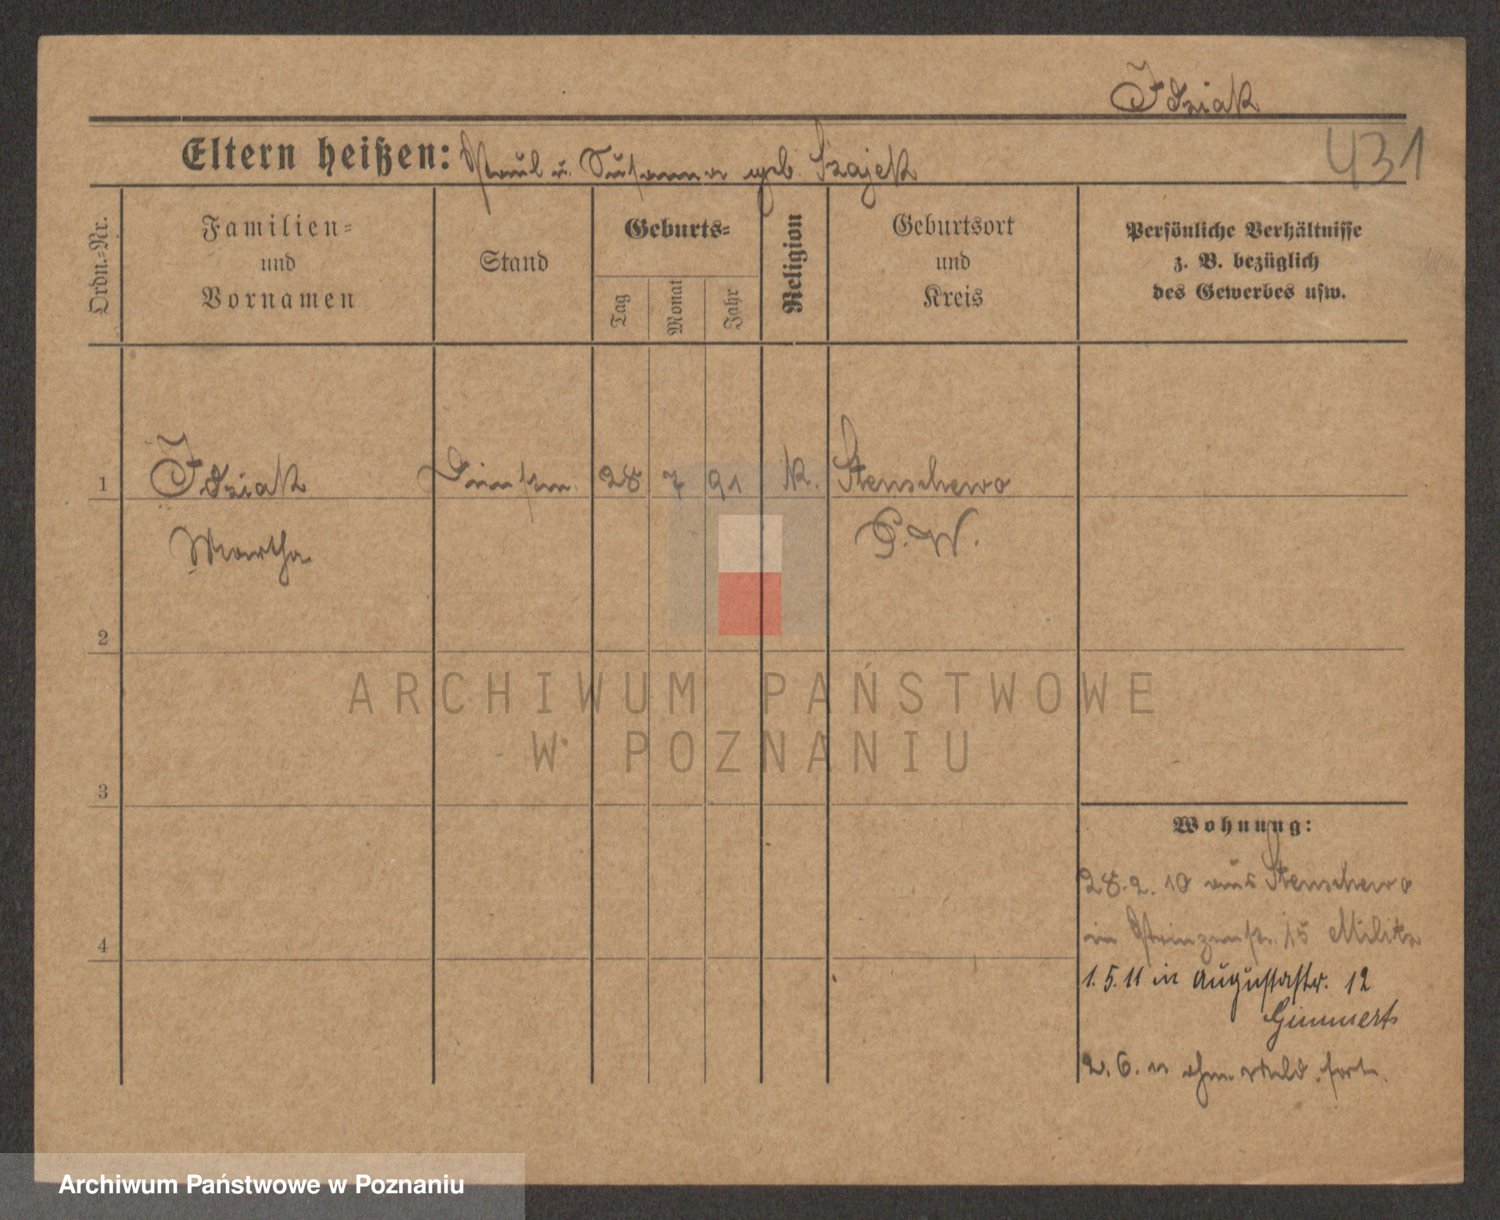 Idziak
431
Eltern heißen: Paul u. Susanna geb. Szajek
Ordn.-Nr.
Familien=
und
Vornamen
Stand
Geburts=
Tag
Monat
Jahr
Religion
Geburtsort
und
Kreis
Persönliche Verhältnisse
z. B. bezüglich
des Gewerbes usw.
1 Idziak 28 7 91 K. Stenschewo
Martha P. W.
2
3
4
Wohnung:
28.2.10 aus Stenschewo
in 15
1.5.11 in Augustastr. 12
Gummert
2.6.11 ohne Meld. fort.
ARCHIWUM PAŃSTWOWE
W POZNANIU
Archiwum Państwowe w Poznaniu